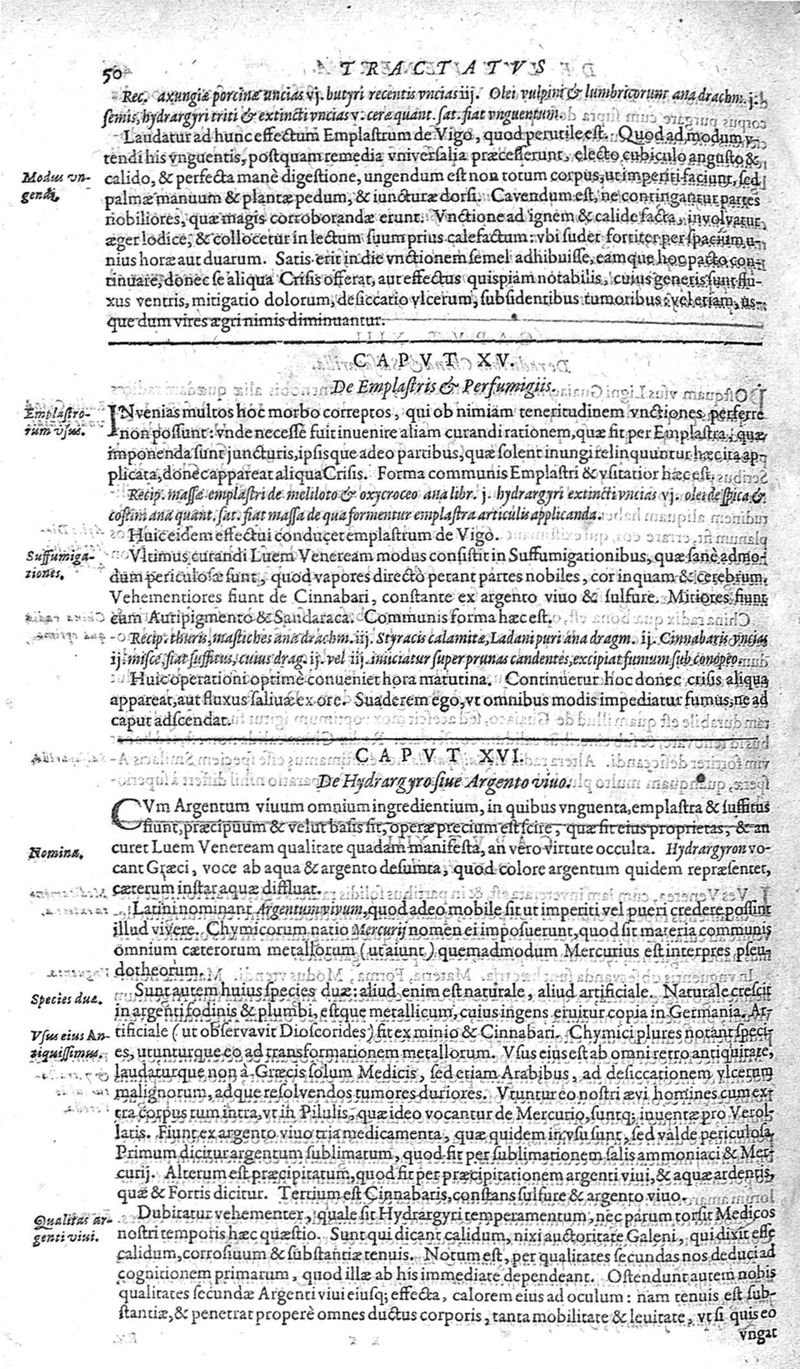 50 TRACTATVS
Rec. axungiæ porcinæ uncias vj. butyri recentis vncias iij. Olei vulpini & lumbricorum ana drachm. j.
semis, hydrargyri triti & extincti vncias v. ceræ quant. sat. fiat vnguentum.
Laudatur ad hunc effectum Emplastrum de Vigo, quod perutile est. Quod ad modum v-
Modus vn-
gendi.
tendi his vnguentis, postquam remedia vniversalia præcesserunt, electo cubiculo angusto &
calido, & perfecta manè digestione, ungendum est non totum corpus, ut imperiti faciunt, sed
palmæ manuum & plantæ pedum, & iuncturæ dorsi. Cavendum est, ne contingantur partes
nobiliores, quæ magis corroborandæ erunt. Vnctione ad ignem & calide facta, involvatur
æger lodice, & collocetur in lectum suum prius calefactum: vbi sudet fortiter per spacium u-
nius horæ aut duarum. Satis erit in die vnctionem semel adhibuisse, eamque hoc pacto con-
tinuare, donec se aliqua Crisis offerat, aut effectus quispiam notabilis, cuius generis sunt flu-
xus ventris, mitigatio dolorum, desiccatio vlcerum, subsidentibus tumoribus: vel etiam, us-
que dum vires ægri nimis diminuantur.
CAPVT XV.
De Emplastris & Perfumigiis.
Emplastro-
rum vsus.
INvenias multos hoc morbo correptos, qui ob nimiam teneritudinem vnctiones perferre
non possunt: vnde necesse fuit inuenire aliam curandi rationem, quæ fit per Emplastra, quæ
imponenda sunt juncturis, ipsisque adeo partibus, quæ solent inungi relinquuntur hæc ita ap-
plicata, donec appareat aliqua Crisis. Forma communis Emplastri & vsitatior hæc est.
Recip. massæ emplastri de meliloto & oxycroceo ana libr. j. hydrargyri extincti vncias vj. olei de spica &
costini ana quant. sat. fiat massa de qua formentur emplastra articulis applicanda.
Huic eidem effectui conducet emplastrum de Vigo.
Suffumiga-
tiones.
Vltimus curandi Luem Veneream modus consistit in Suffumigationibus, quæ sanè admo-
dum periculosæ sunt, quod vapores directò petant partes nobiles, cor inquam & cerebrum.
Vehementiores fiunt de Cinnabari, constante ex argento viuo & sulfure. Mitiores fiunt
cum Auripigmento & Sandaraca. Communis forma hæc est.
Recip. thuris, mastiches ana drachm. iij. Styracis calamitæ, Ladani puri ana dragm. ij. Cinnabaris vncias
ij. misce, fiat suffitus, cuius drag. ij. vel iij. iniiciatur super prunas candentes, excipiat fumum sub conopeo.
Huic operationi optimè conveniet hora matutina. Continuetur hoc donec crisis aliqua
appareat, aut fluxus salivæ ex ore. Suaderem ego, vt omnibus modis impediatur fumus, ne ad
caput adscendat.
CAPVT XVI.
De Hydrargyro siue Argento viuo.
CVm Argentum viuum omnium ingredientium, in quibus vnguenta, emplastra & suffitus
fiunt, præcipuum & velut basis sit, operæ precium est scire, quæ sit eius proprietas, & an
Nomina.
curet Luem Veneream qualitate quadam manifesta, an vero virtute occulta. Hydrargyron vo-
cant Græci, voce ab aqua & argento desumta, quod colore argentum quidem repræsentet,
cæterum instar aquæ diffluat.
Latini nominant Argentum vivum, quod adeo mobile sit ut imperiti vel pueri credere possint
illud vivere. Chymicorum natio Mercurij nomen ei imposuerunt, quod sit materia communis
omnium cæterorum metallorum (ut aiunt) quemadmodum Mercurius est interpres pseu-
dotheorum.
Species duæ.
Sunt autem huius species duæ: aliud enim est naturale, aliud artificiale. Naturale crescit
in argenti fodinis & plumbi, estque metallicum, cuius ingens eruitur copia in Germania. Ar-
Vsus eius An-
tiquissimus.
tificiale (ut observavit Dioscorides) fit ex minio & Cinnabari. Chymici plures notant speci-
es, utunturque eo ad transformationem metallorum. Vsus eius est ab omni retro antiquitate,
laudaturque non à Græcis solum Medicis, sed etiam Arabibus, ad desiccationem vlcerum
malignorum, adque resolvendos tumores duriores. Vtuntur eo nostri ævi homines cum ex-
tra corpus tum intra, vt in Pilulis, quæ ideo vocantur de Mercurio, suntq; inuentæ pro Verol-
latis. Fiunt ex argento viuo tria medicamenta, quæ quidem in vsu sunt, sed valde periculosa.
Primum dicitur argentum sublimatum, quod fit per sublimationem salis ammoniaci & Mer-
curij. Alterum est præcipitatum, quod fit per præcipitationem argenti viui, & aquæ ardentis,
quæ & Fortis dicitur. Tertium est Cinnabaris, constans sulfure & argento viuo.
Qualitas ar-
genti viui.
Dubitatur vehementer, quale sit Hydrargyri temperamentum, nec parum torsit Medicos
nostri temporis hæc quæstio. Sunt qui dicant calidum, nixi auctoritate Galeni, qui dixit esse
calidum, corrosiuum & substantiæ tenuis. Notum est, per qualitates secundas nos deduci ad
cognitionem primarum, quod illæ ab his immediate dependeant. Ostendunt autem nobis
qualitates secundæ Argenti viui eiusq; effecta, calorem eius ad oculum: nam tenuis est sub-
stantiæ, & penetrat properè omnes ductus corporis, tanta mobilitate & leuitate, vt si quis eo
vngat